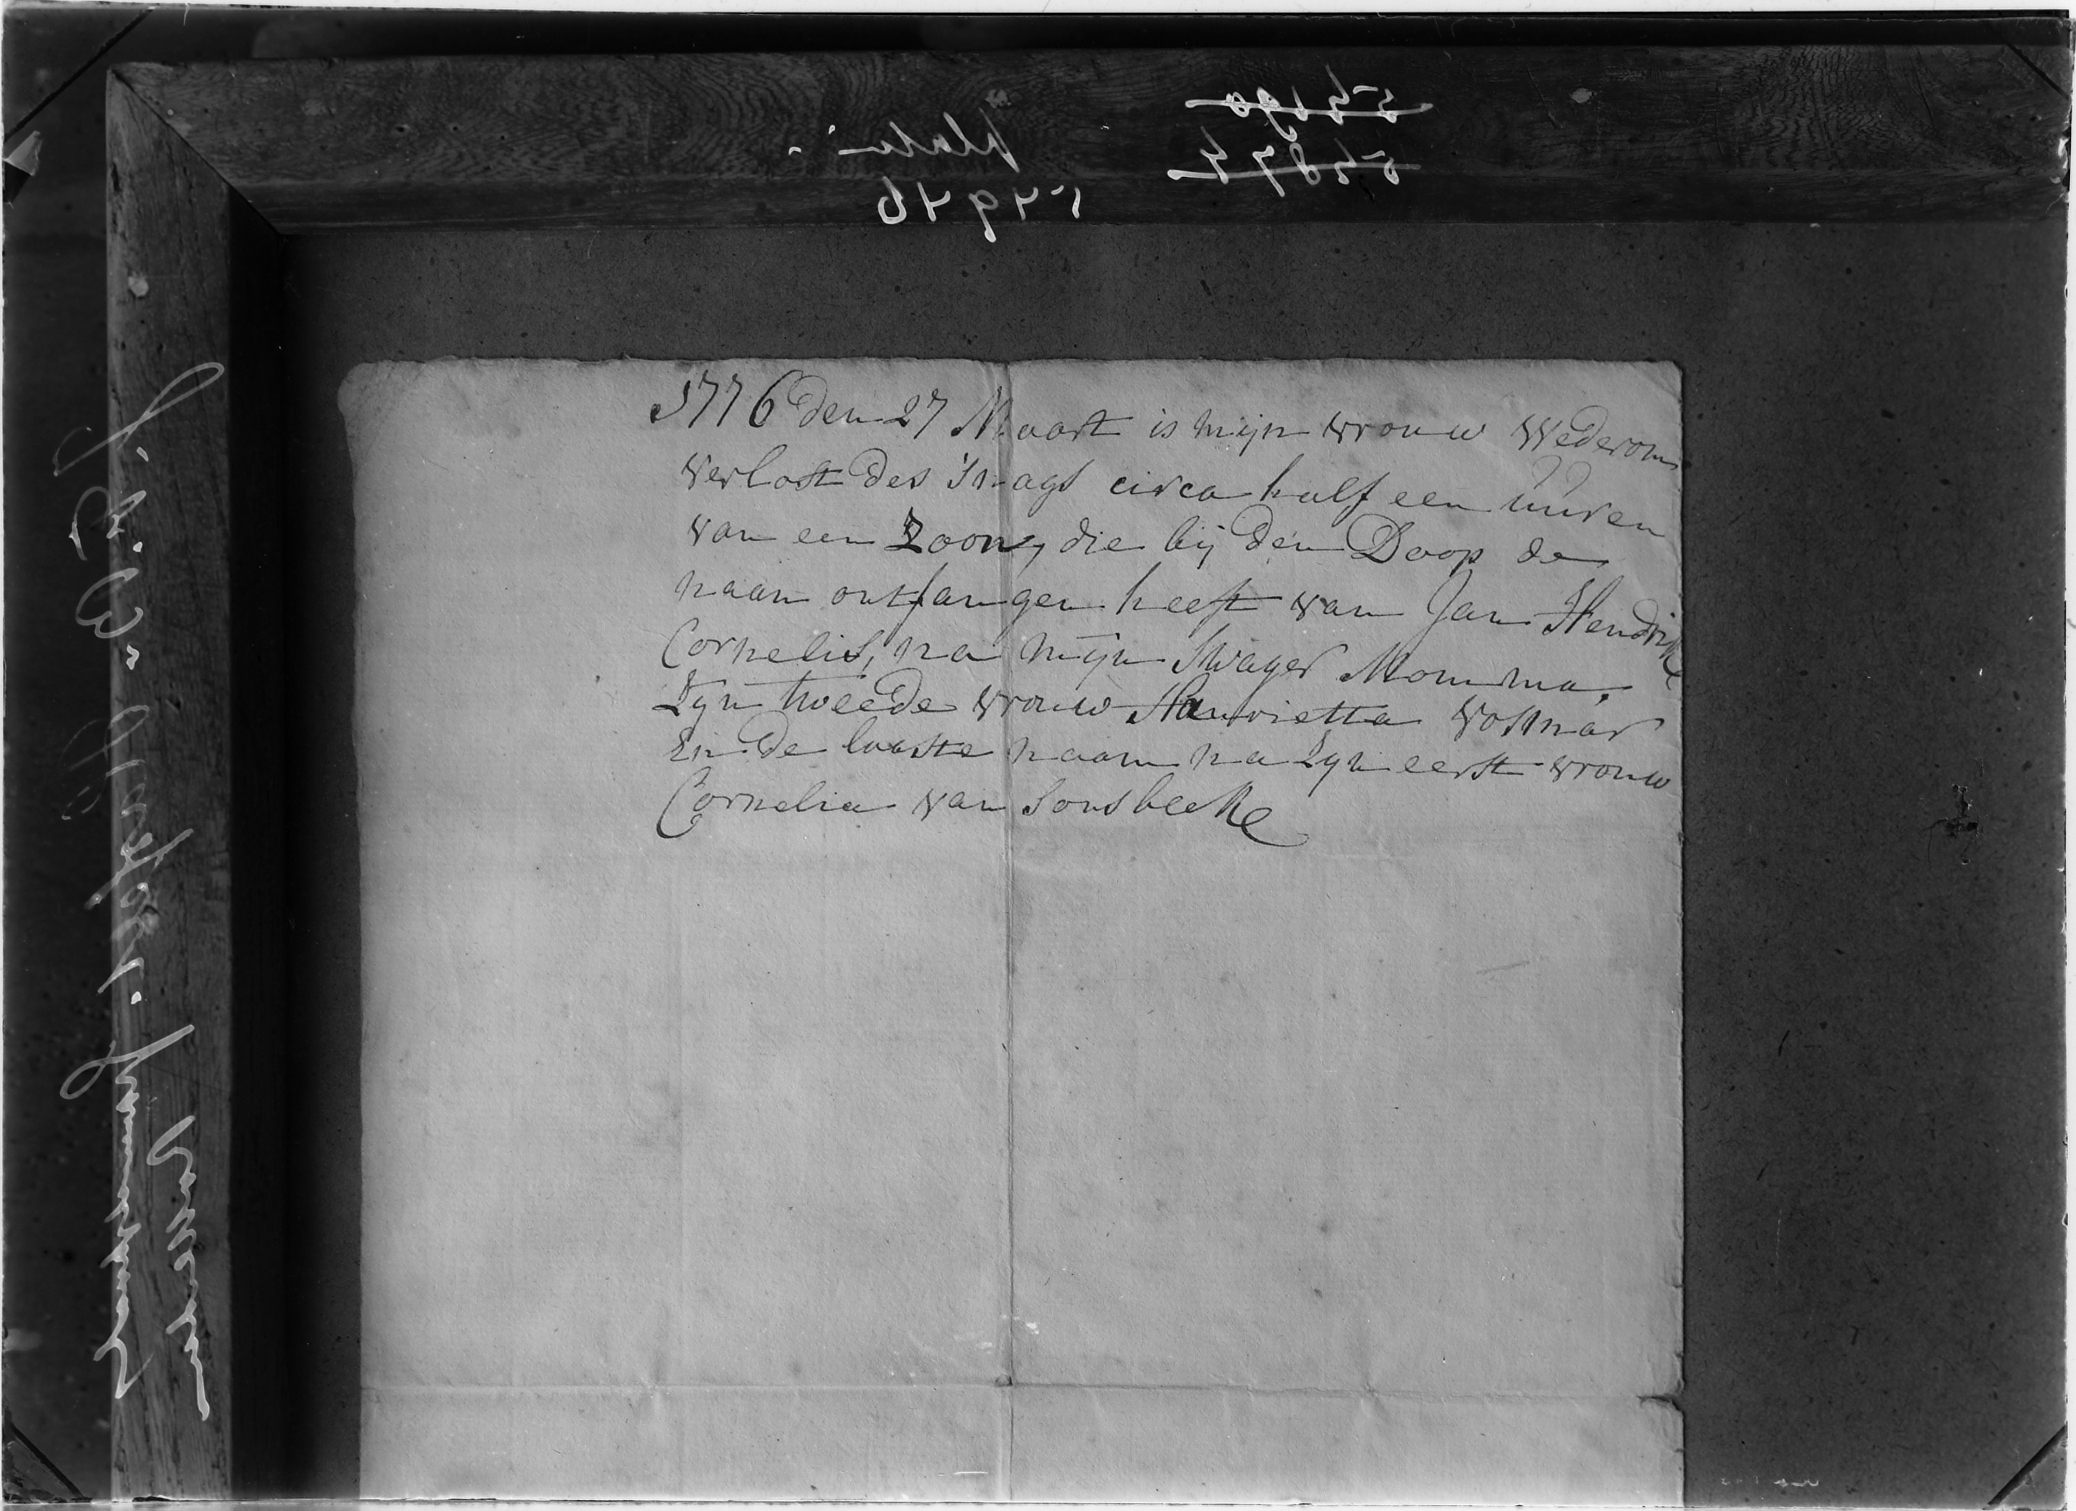 54190
54874
plati
54946
1776 den 27 Maart is mijn vrouw Wederom
verlost des 'snags circa half een uuren
van een Zoon, die bij den Doop de
naam ontfangen heeft van Jan Hendrik
Cornelis, na mijn Swager Momma,
Zyn tweede vrouw Henrietta Vosmar
En de laaste naam na Zyn eerste vrouw
Cornelia van Sonsbeeke